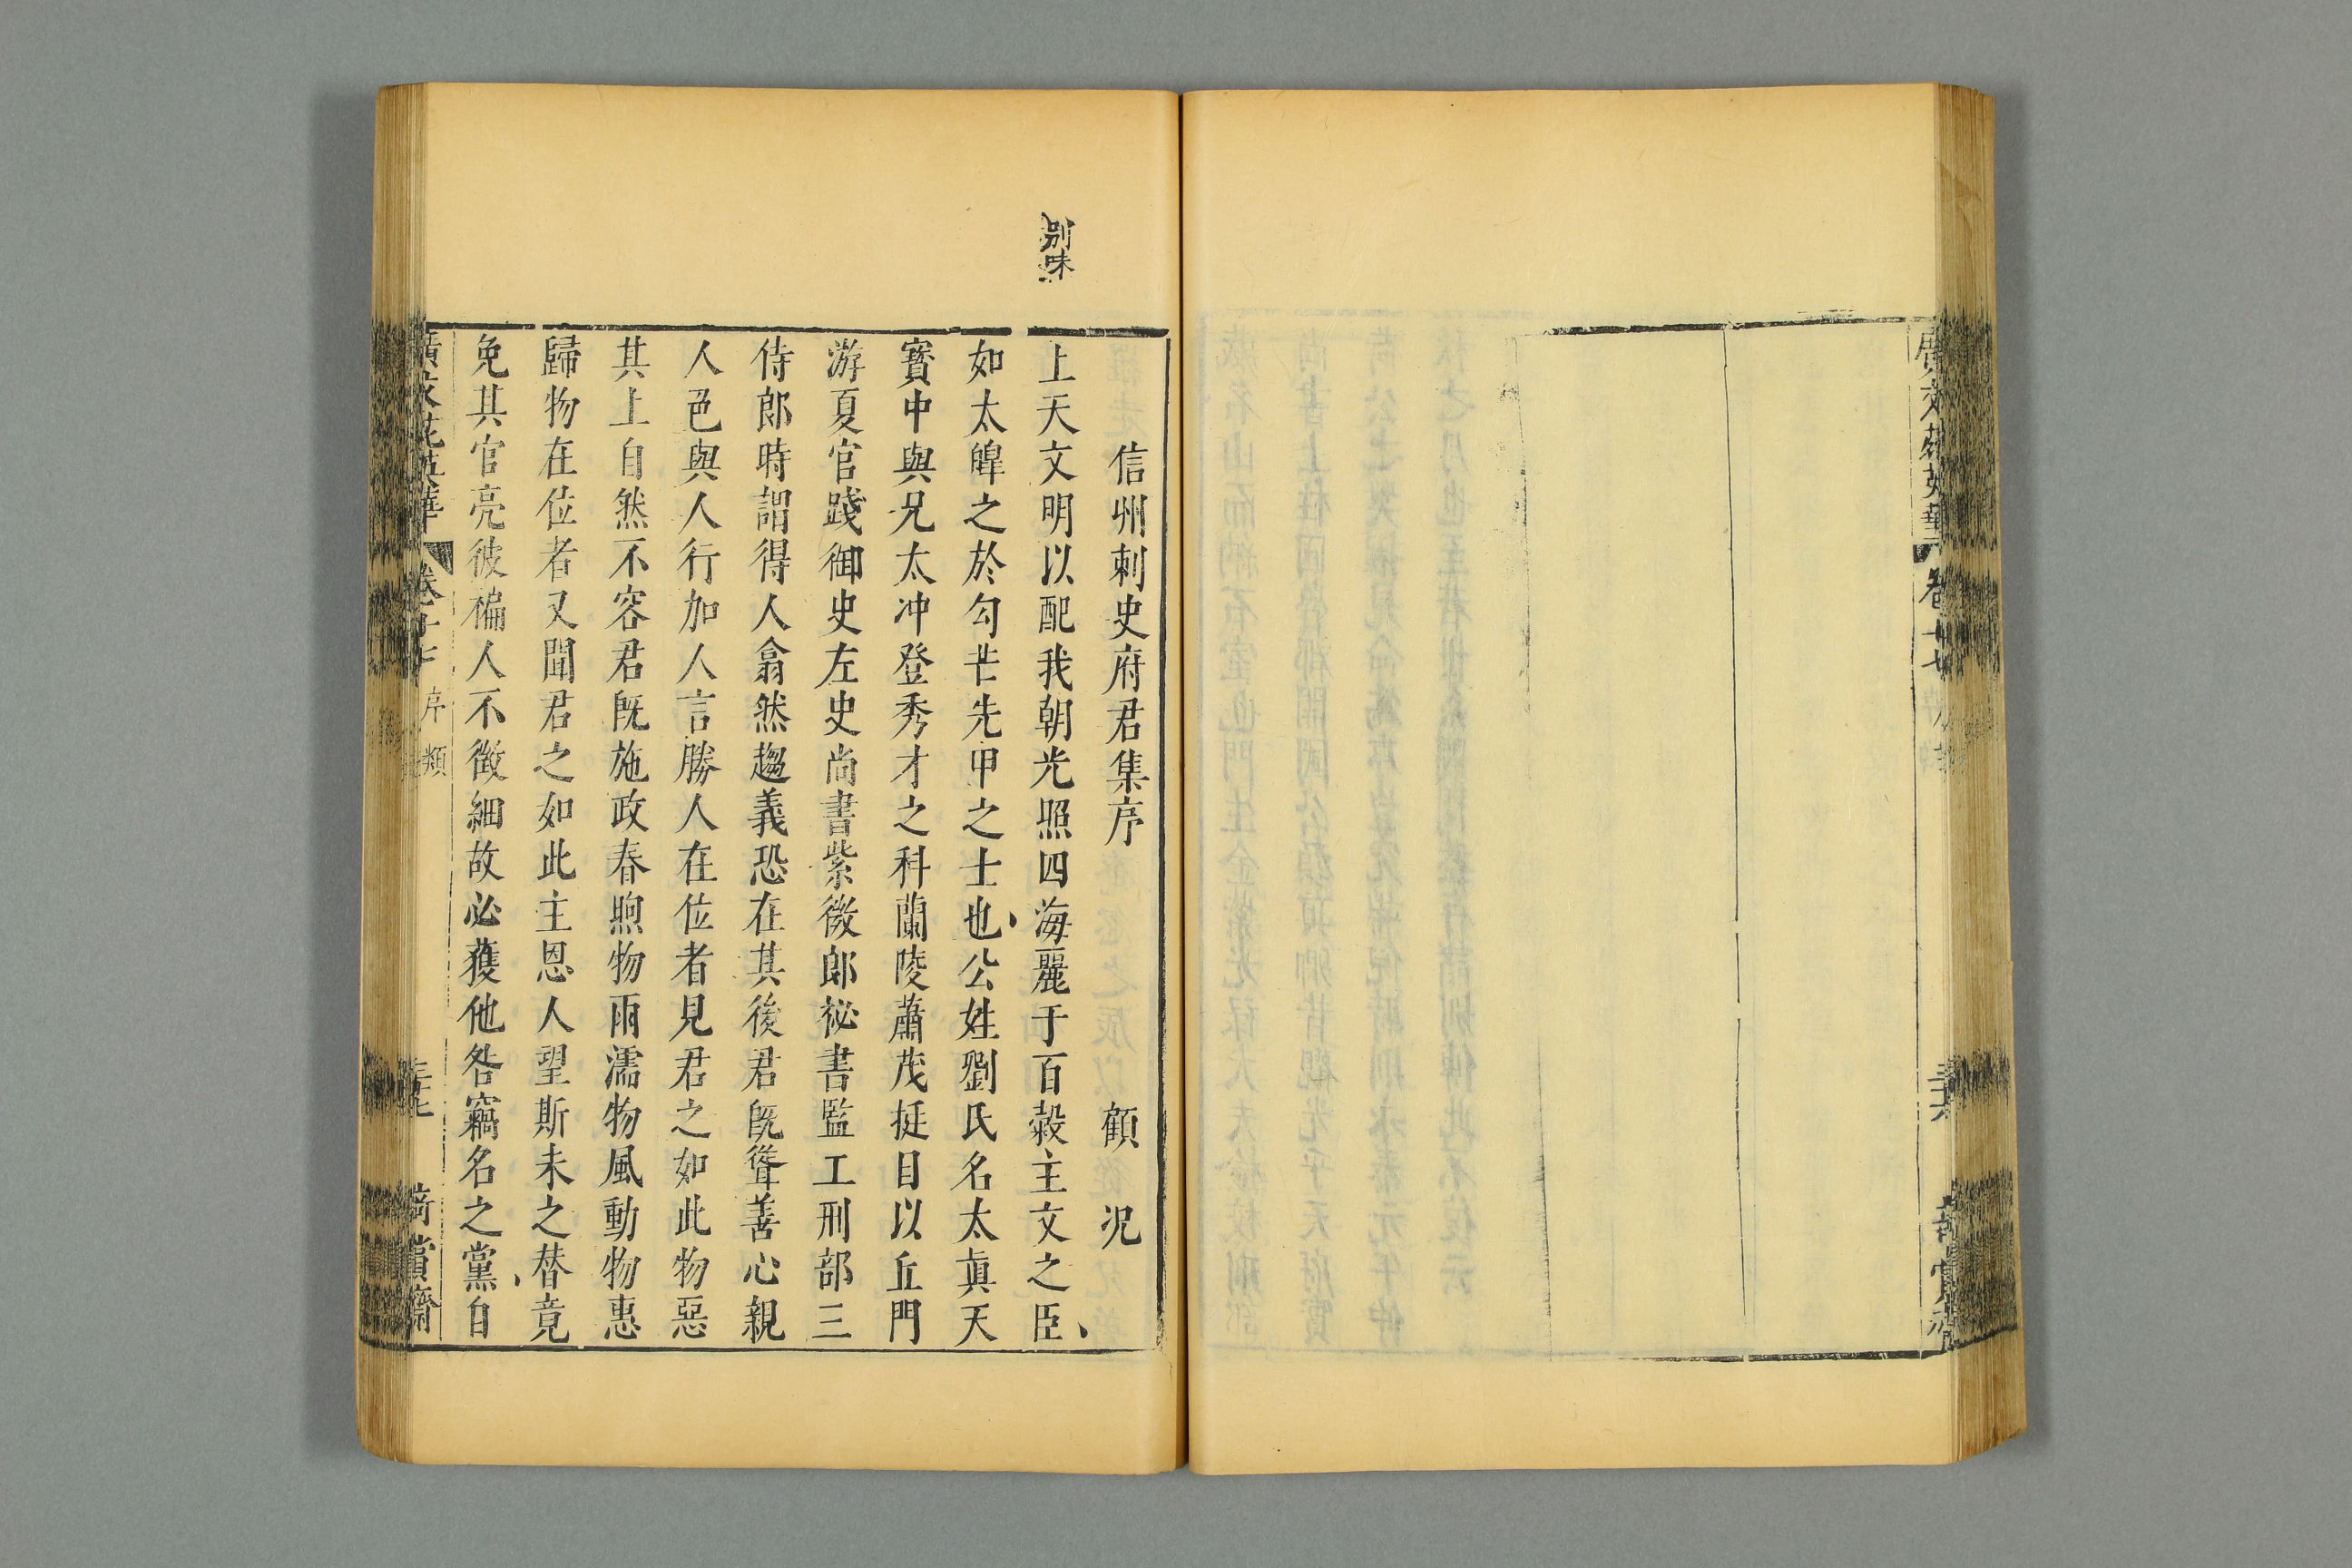 別味
信州刺史府君集序 顧況
上天文明以配我朝光照四海麗于百穀主文之臣
如太皥之於勾芒先甲之士也公姓劉氏名太眞天
寶中與兄太冲登秀才之科蘭陵蕭茂挺目以丘門
游夏官踐御史左史尚書紫微郎祕書監工刑部三
侍郎時謂得人翕然趨義恐在其後君旣聳善心親
人色與人行加人言勝人在位者見君之如此物惡
其上自然不容君旣施政春煦物雨濡物風動物惠
歸物在位者又聞君之如此主恩人望斯未之替竟
免其官亮彼褊人不徵細故必獲他咎竊名之黨自
廣文苑英華 卷十七 序類 三十七 奇賞齋
廣文苑英華 卷十七 三十六